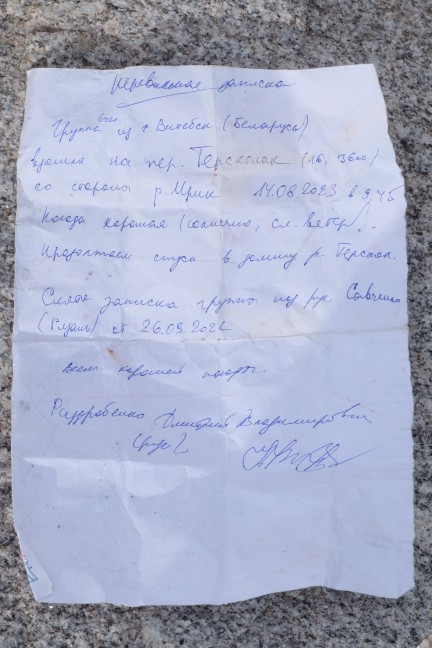 перевальная записка
Группа из г. Витебск (Беларусь)
взошла на пер. Терсколак (1Б, 3610)
со стороны р. Ирик 14.08.2023 в 9.45
Погода хорошая (солнечно, сл. ветер).
Продолжаем спуск в долину р. Терскол.
Снята записка группы под рук Савченко
(Рязань) от 26.09.2022
Всем хорошей погоды
Дмитрий Владимирович